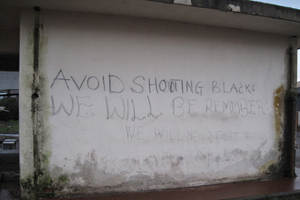 AVOID SHOOTING BLACKS
WE WILL BE REMEMBER
WE WILL